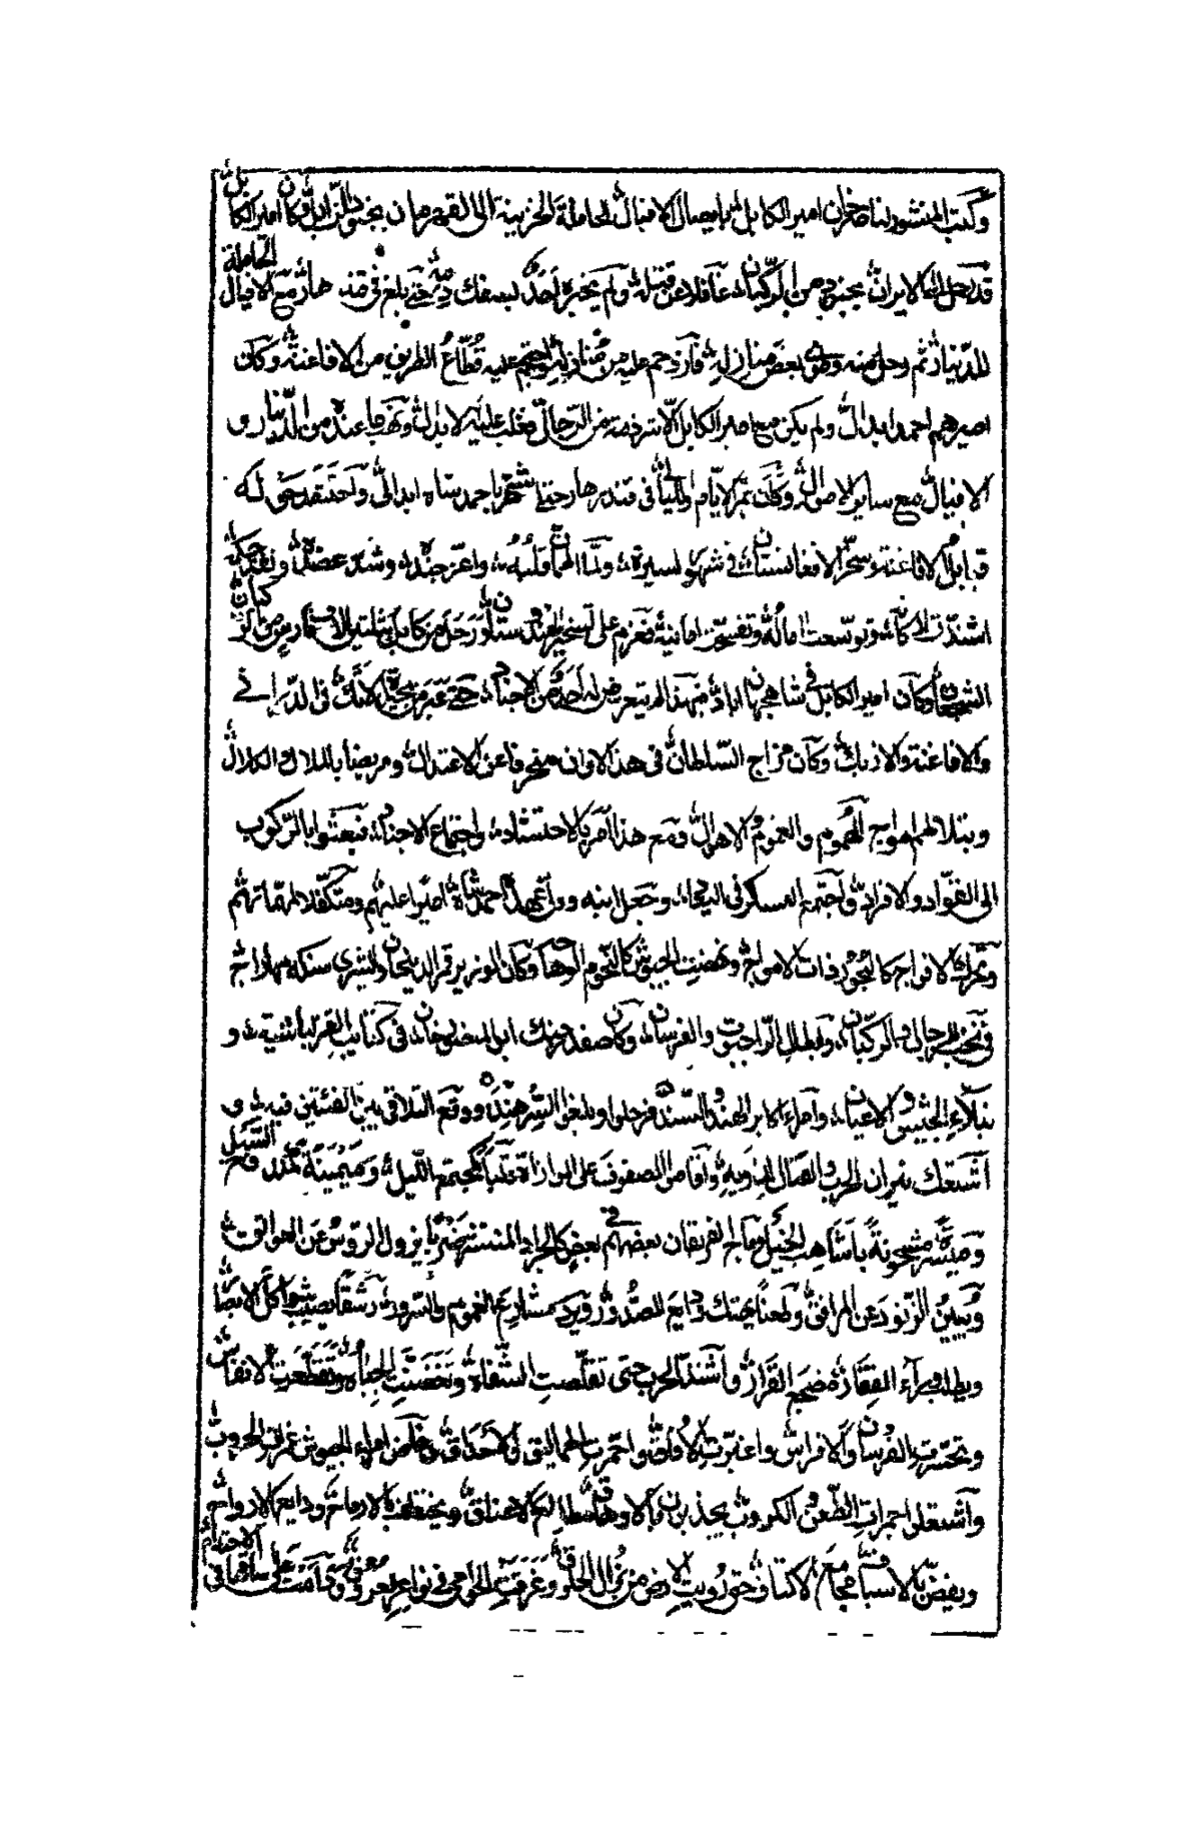 وكتب المنشور لناصر خان امير الكابل بايصال الافيال الحاملة الخزينة الى القهرمان بجنود الزابل وكان امير الكابل
قد رحل الى الايران بجنود من الركبان غافلا عن قتله ولم يخبره احد بسفك دمه حتى بلغ فى قندهار مع الافيال الحاملة
للدينار ثم رحل منه وطوى بعض منازله فازدحم عليه من واجتمع عليه قطاع الطريق من الافاغنة وكان
اميرهم احمد ابدالى ولم يكن مع امير الكابل الا شرذمة من الرجال فغلب عليه الابدالى ونهب ما عنده من الدينار و
الافيال مع ساير الاموال وكان تمر الايام والليالى فى قندهار حتى اشتهر باحمد شاه ابدالى واحتشد حتى له
قبايل الافاغنة وسخر الافغانستان فى شهور يسيرة ولما اطمأن قلبه واعز جنده وشد عضده ونفذ حكمه
اشتدت الاركان وتوسعت اماله وتفسحت امانيه فعزم على تسخير الهندوستان ورحل من كابل بثلثين الاف فارس من الركبان
الشجعان وكان امير الكابل فى شاهجهان اباد فبهذا لم يتعرض له احد من الاجناد حتى عبر من الاتك فى الدرانى
والافاغنة والازبك وكان مزاج السلطان فى هذا الاوان منحرفا عن الاعتدال ومريضا بالملال والكلال
وبتلاطم امواج الهموم والغموم الاهوال ومع هذا امر بالاحتشاد واجتماع الاجناد فبعثوا بالركوب
الى القواد والافراد واجتمع العسكر فى البيداء وجعل ابنه وولى عهده احمد شاه اميرا عليهم ومتكفلا لمهماتهم
وتحرك الافواج كالبحور ذات الامواج ونهضت الجيوش كالنجوم الوهاج وكان الوزير قمر الدين خان وايشرى سنكه مهاراج
فى نخب الرجال والركبان وابطال الراجبوت والفرسان وكان صفدر جنك ابو المنصور خان فى كتايب القزلباشية و
نبلاء الجيش والاعيان وامراء اكابر الهند والسند فرحلوا وبلغوا السرهند ووقع التلاقى بين الفئتين فيه و
اشتعلت نيران الحرب والقتال واقاموا الصفوف على الموازاة قلبا كمجتمع الليل وميمنة كمدفع السيل
وميسرة مشحونة باشاهب الخيل وماج الفريقان بعضهم فى بعض كالجراد المنتشر ضربا يزيل الرؤس عن العواتق
ويبين الزنود عن المرافق وطعنا يهتك ودايع الصدور ويرد مشارع الغموم والسرور رشقا يصيب شواكل الابصار
ويطلب وراء الفقار مضجع القرار واشتد الحرب حتى تقلصت الشفاه وتغضنت الجباه وتقطعت الانفاس
وتحيرت الفرسان والافراس واغبرت الافاق واحمرت الحماليق فى الاحداق وخاض امراء الجيوش غمرات الحروب
واشتعلوا جمرات الطعن والكروب يجذبون بالاوهاق طوالع الاعناق ويختطفون بالارماح ودايع الارواح
ويفضون بالاسياف مجامع الاكتاف حتى رويت الارض من نزال الحلوق وغرقت الحوامى فى نواعر العروق وقامت على ساقها فى معرض الاحترام